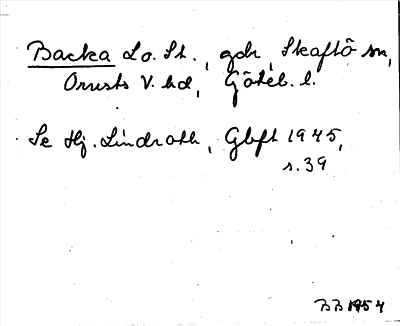 Backa Lo. St., gdr, Skaftö sn,
Orusts V. hd, Göteb. l.
Se Hj. Lindroth, Gbft 1945,
s. 39
BB 1954